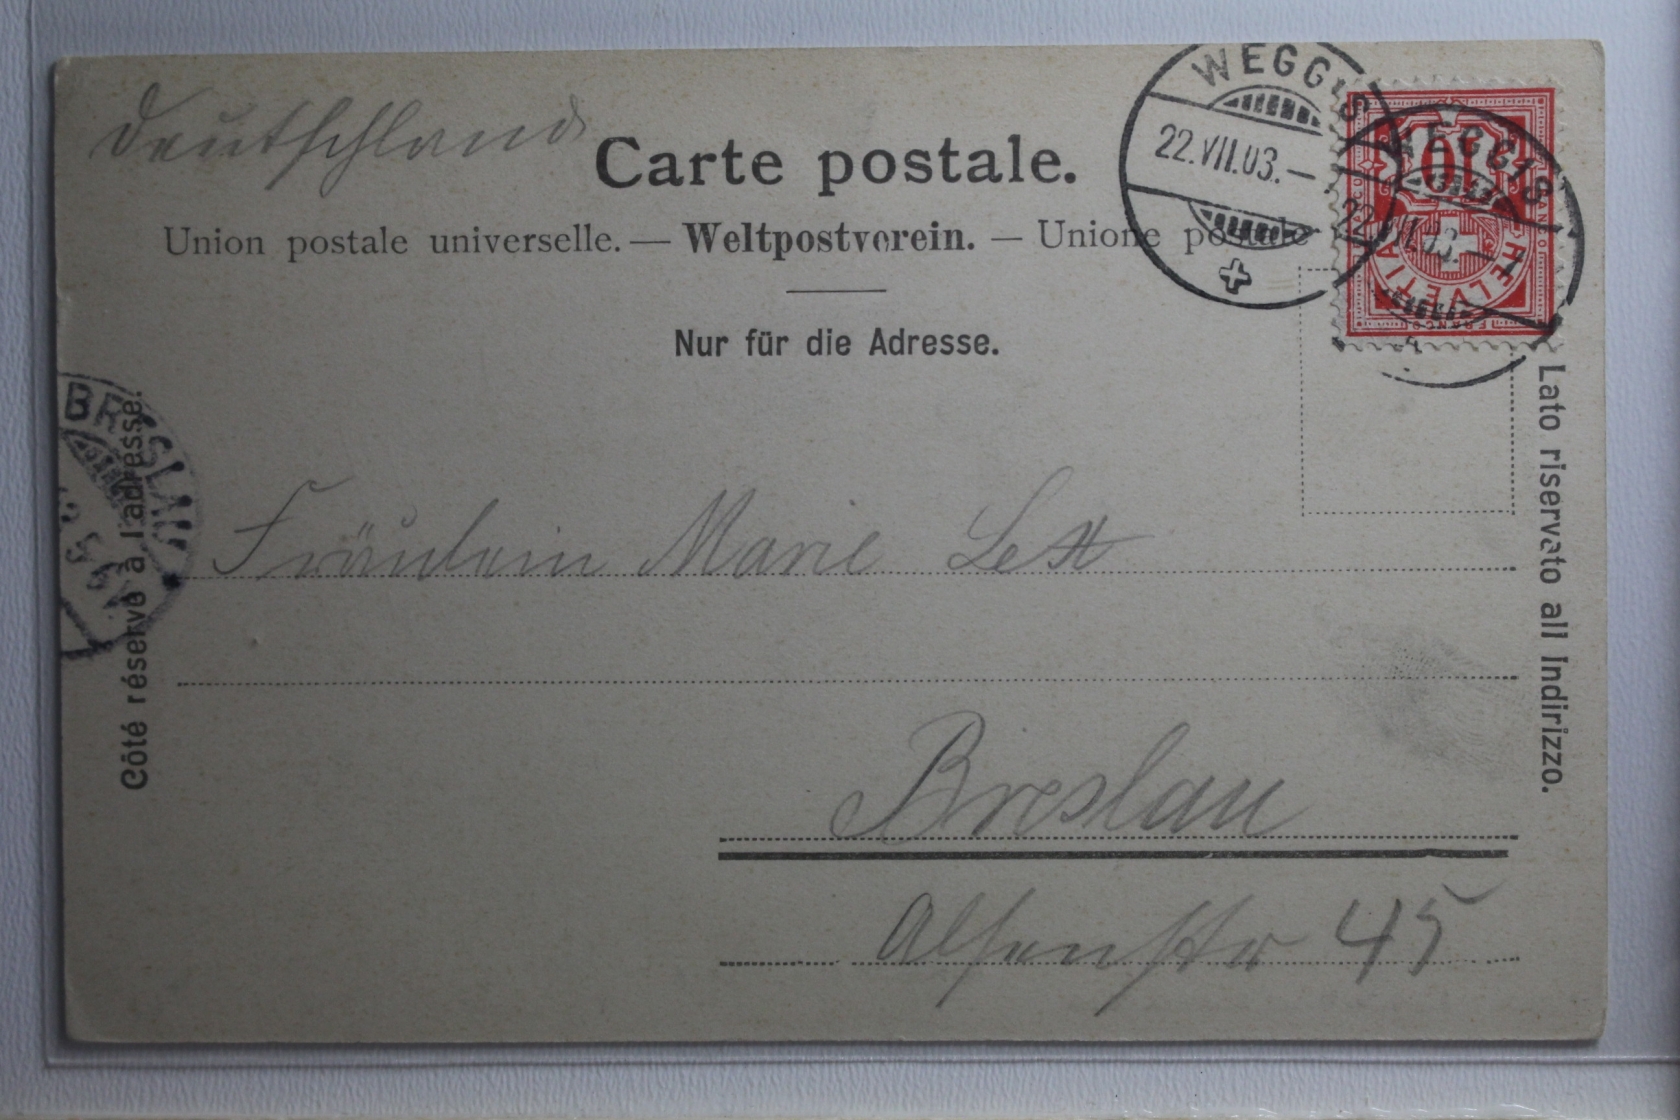 Deutschland
Carte postale.
Union postale universelle. — Weltpostverein. — Unione postale
Nur für die Adresse.
WEGGIS
22.VII.03.–
WEGGIS
22.VII.03.–7
10
HELVETIA
FRANCO
BRESLAU
Côté réservé à l'adresse.
Lato riservato all Indirizzo.
Fräulein Marie Lett
Breslau
Alsenstr 45